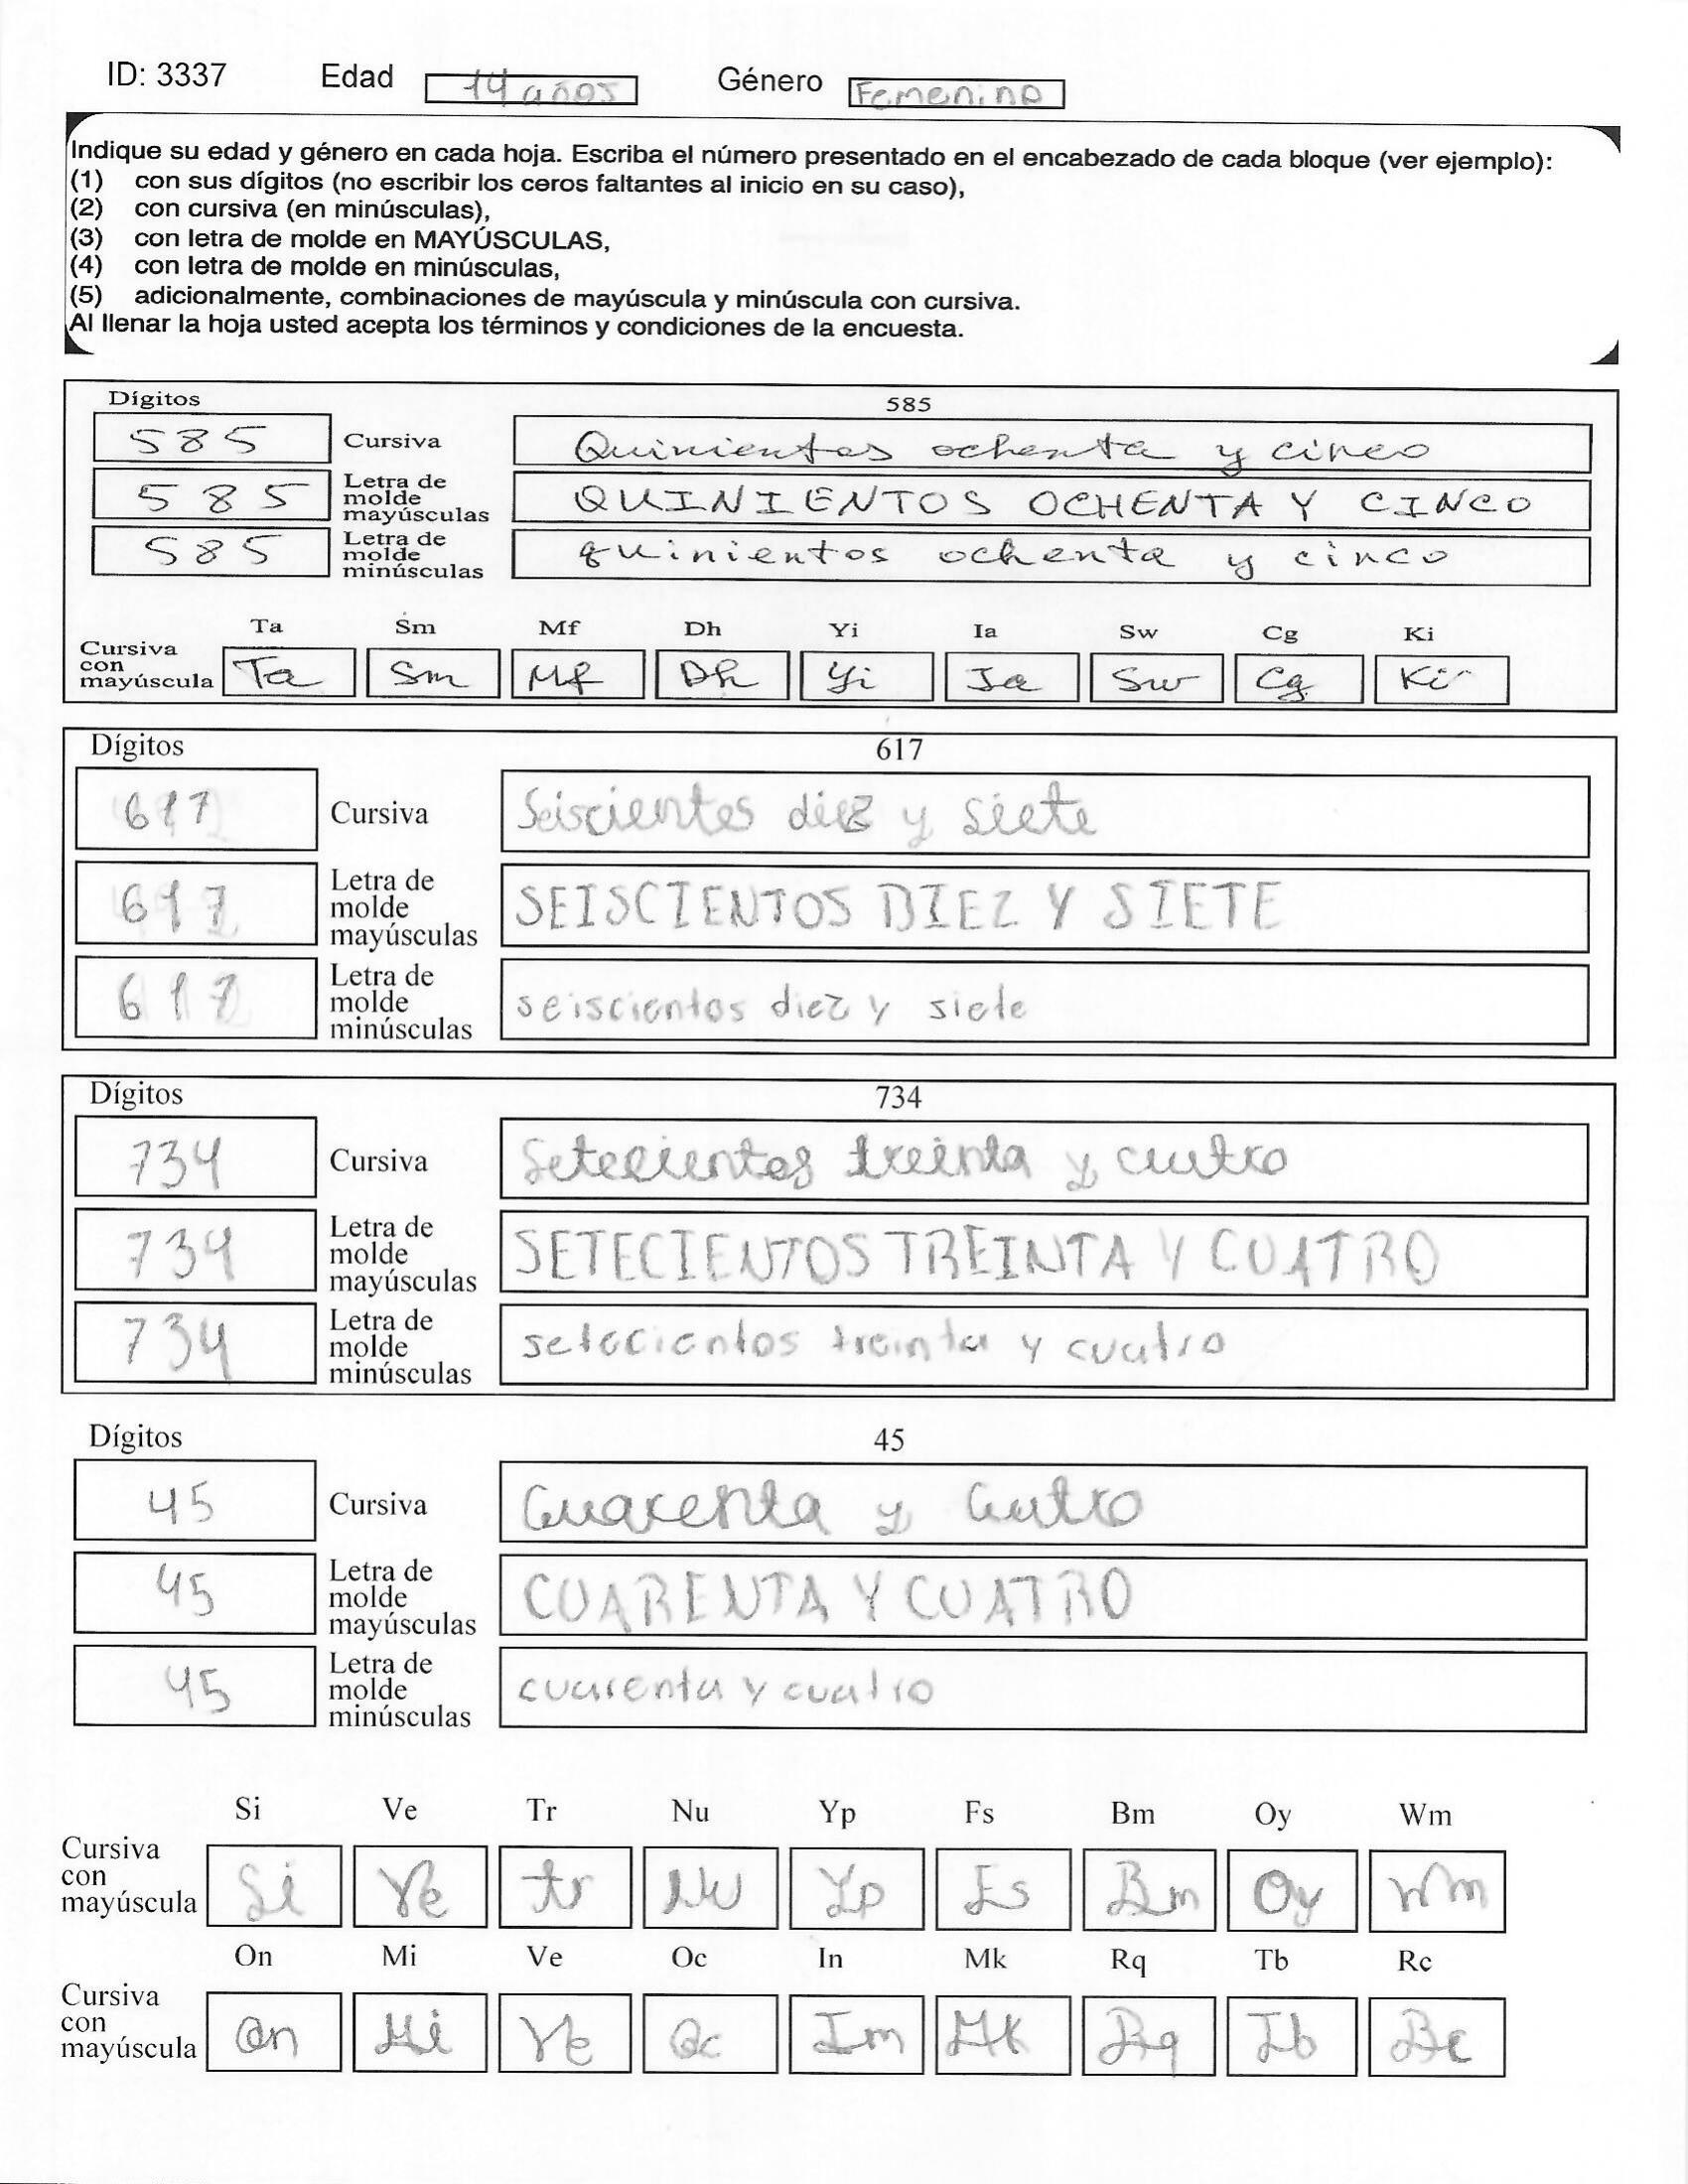 ID: 3337 Edad 14 años Género Femenino
Indique su edad y género en cada hoja. Escriba el número presentado en el encabezado de cada bloque (ver ejemplo):
(1) con sus dígitos (no escribir los ceros faltantes al inicio en su caso),
(2) con cursiva (en minúsculas),
(3) con letra de molde en MAYÚSCULAS,
(4) con letra de molde en minúsculas,
(5) adicionalmente, combinaciones de mayúscula y minúscula con cursiva.
Al llenar la hoja usted acepta los términos y condiciones de la encuesta.
Dígitos 585
585 Cursiva Quinientos ochenta y cinco
585 Letra de molde mayúsculas QUINIENTOS OCHENTA Y CINCO
585 Letra de molde minúsculas quinientos ochenta y cinco
Ta Sm Mf Dh Yi Ia Sw Cg Ki
Cursiva con mayúscula Ta Sm Mf Dh Yi Ia Sw Cg Ki
Dígitos 617
617 Cursiva Seiscientos diez y siete
617 Letra de molde mayúsculas SEISCIENTOS DIEZ Y SIETE
617 Letra de molde minúsculas seiscientos diez y siete
Dígitos 734
734 Cursiva Setecientos treinta y cuatro
734 Letra de molde mayúsculas SETECIENTOS TREINTA Y CUATRO
734 Letra de molde minúsculas setecientos treinta y cuatro
Dígitos 45
45 Cursiva Cuarenta y Cuatro
45 Letra de molde mayúsculas CUARENTA Y CUATRO
45 Letra de molde minúsculas cuarenta y cuatro
Si Ve Tr Nu Yp Fs Bm Oy Wm
Cursiva con mayúscula Si Ve tr Nu Yp Fs Bm Oy Wm
On Mi Ve Oc In Mk Rq Tb Rc
Cursiva con mayúscula On Mi Ve Oc Im Mk Rq Tb Rc